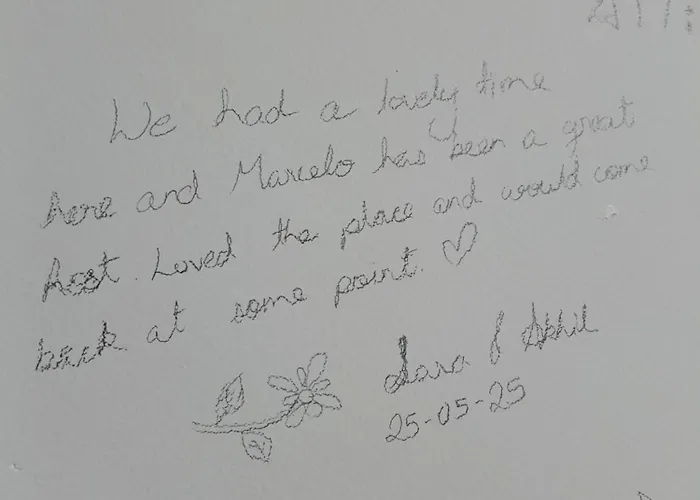 We had a lovely time
here and Marcelo has been a great
host. Loved the place and would come
back at some point. ♡
Sara & Akhil
25-05-25